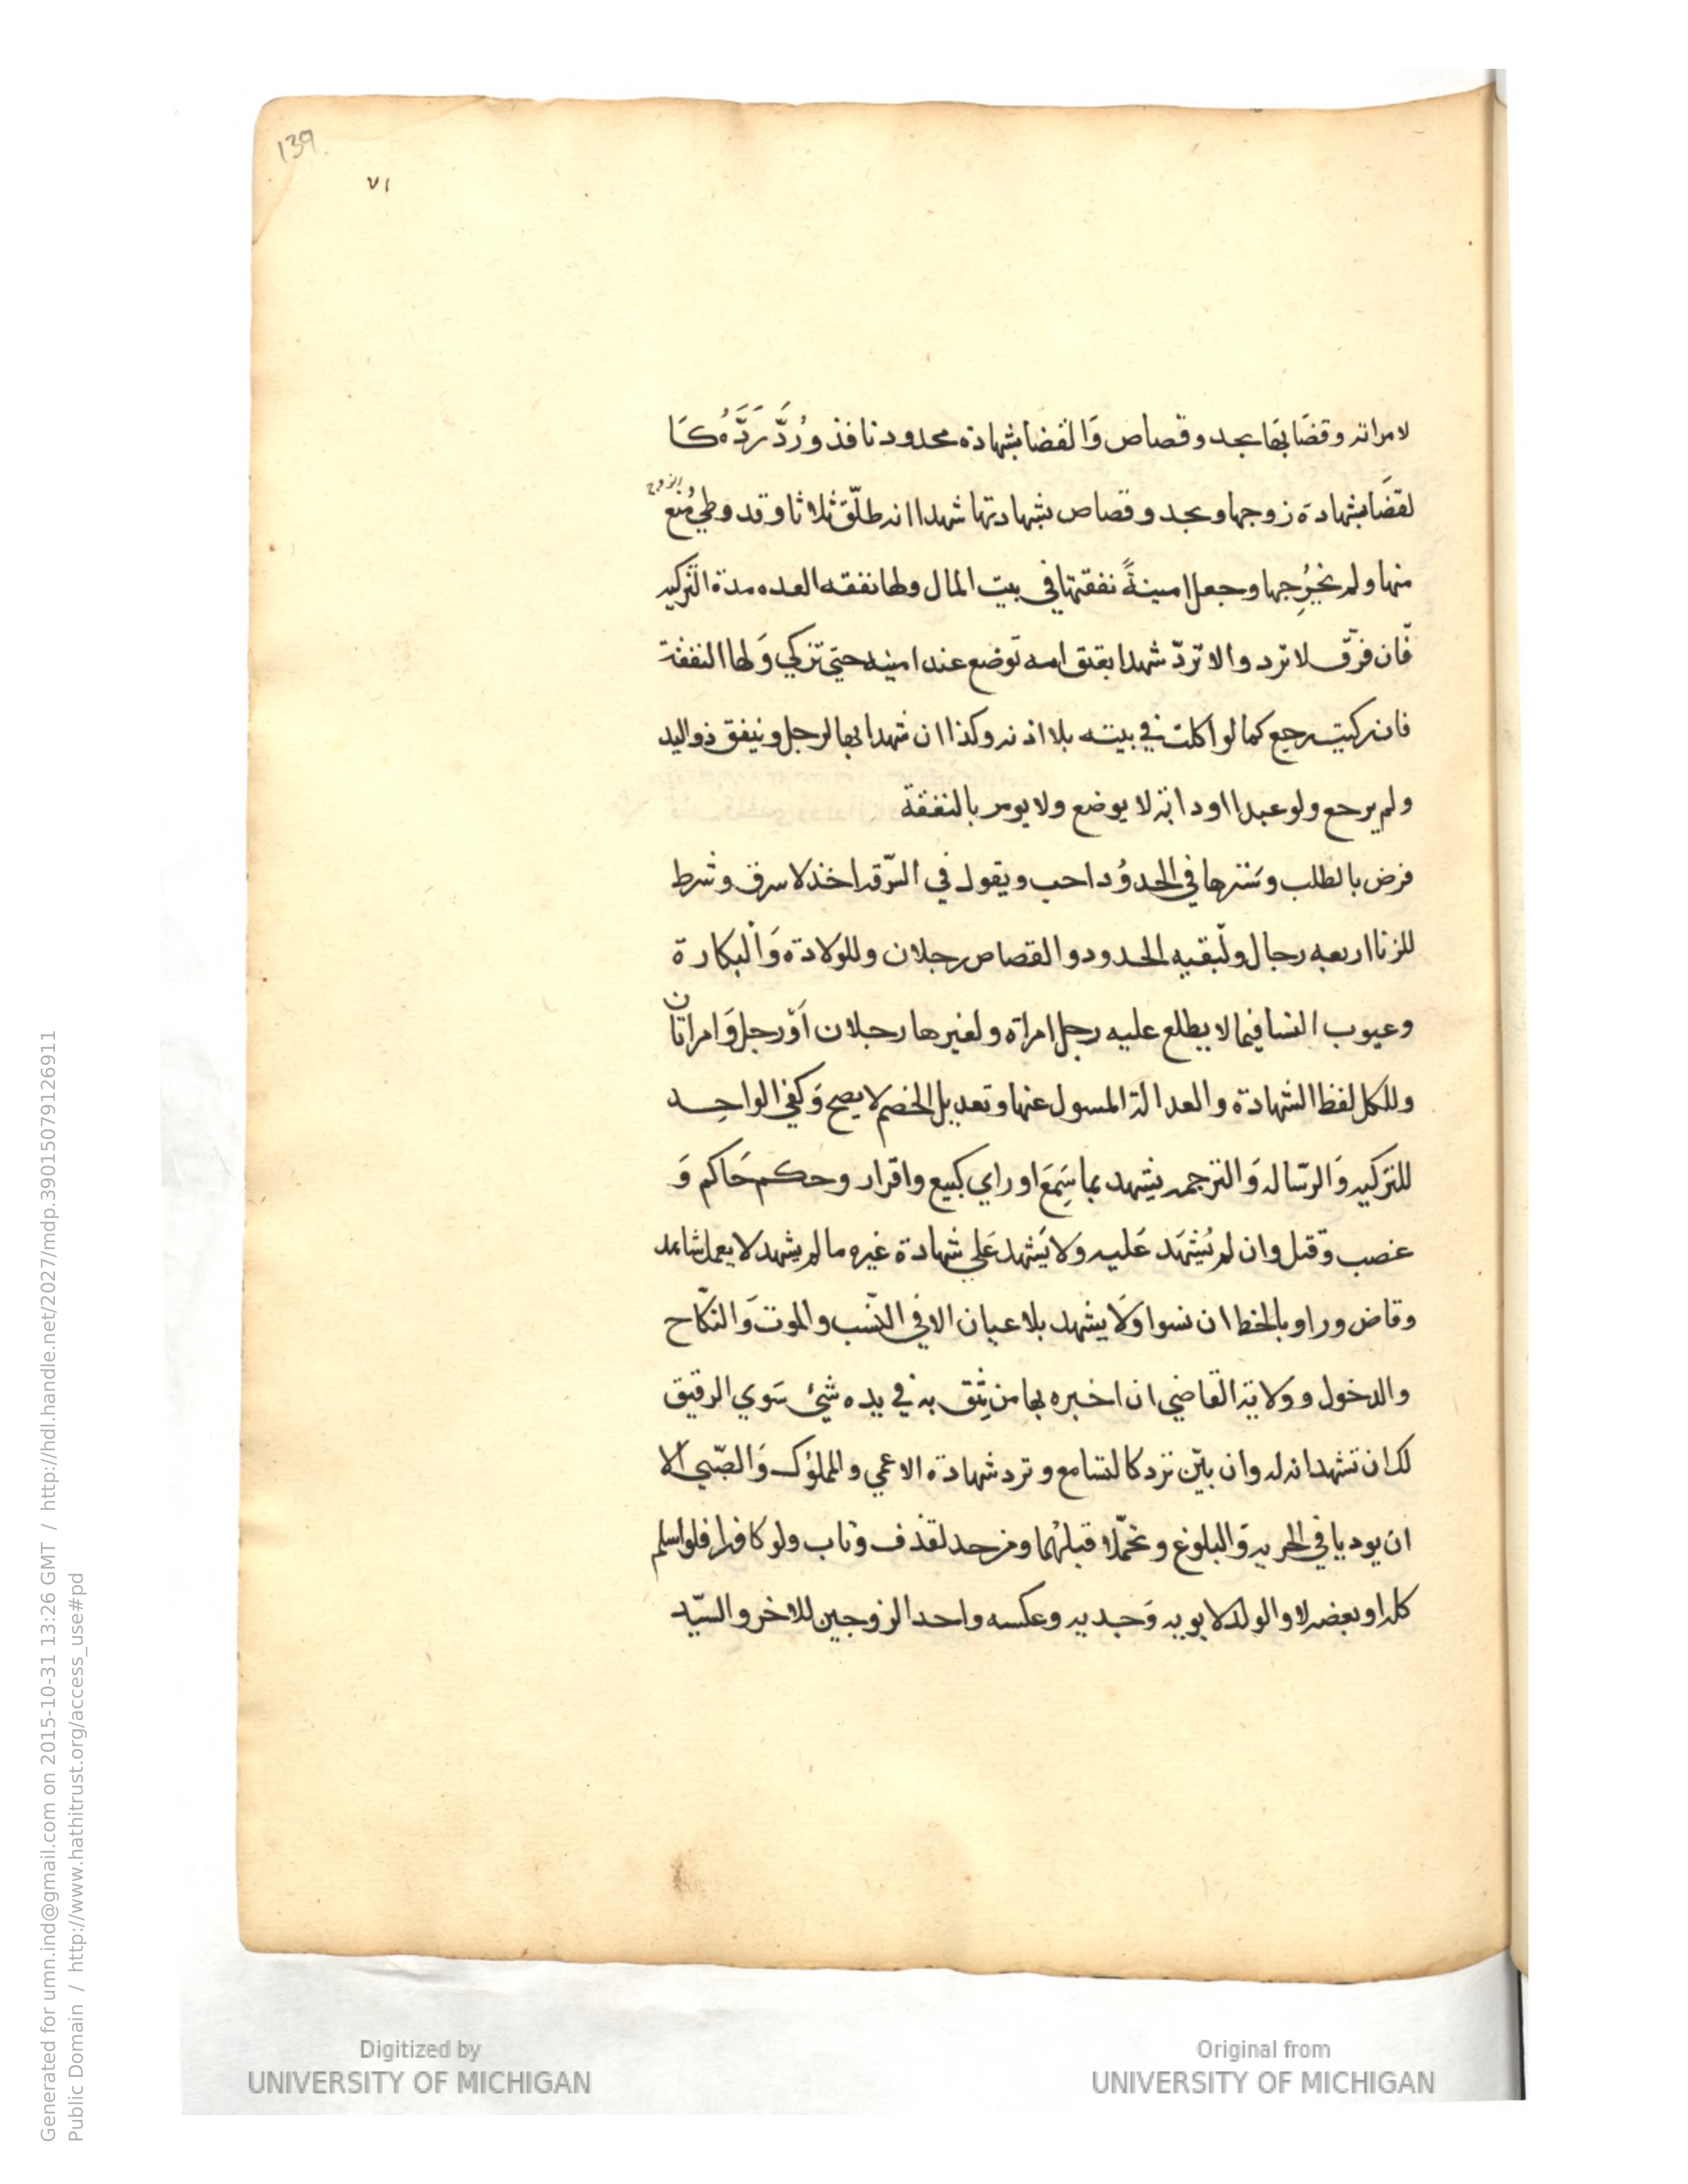 139
٧١
لامراته وقضَا بها بحد وقصاص وَالقضا بشهادة محدود نافذ ورُدَّ رَدَّهُ كَـا
لقضَا بشهادة زوجها وبحد وقصاص بشهادتها شهدا انه طلّق ثلاثا وقد وطي مُنع الزوج
منها ولم يخرِجها وجعل امينةً نفقتها في بيت المال ولها نفقه العده مدة التزكيه
فان فرّق لا ترد والا تردّ شهدا بعتق امه توضع عند امينه حتي تزكي وَلها النفقة
فان زكيت رجع كما لو اكلت في بيته بلا اذنه وكذا ان شهدا بها لرجل وينفق ذو اليد
ولم يرجع ولو عبدا او دابة لا يوضع ولا يومر بالنفقة
فرض بالطلب وسَترها في الحدوُد احب ويقول في السّرقه اخذ لا سرق وشرط
للزنا اربعه رجال ولبقيه الحدود والقصاص رجلان وللوَلادة وَالبكارة
وعيوب النسا فيما لا يطلع عليه رجل امراة ولغيرها رجلان اَوْ رجل وَامراتان
وللكل لفظ الشهادة والعدالة المسول عنها وتعديل الخصم لا يصح وَكفي الواحِـد
للتزكيه وَالرّساله وَالترجمه يشهد بما سَمِعَ او راي كبيع واقرار وحكم حَاكم وَ
غصب وَقتل وان لم يُشهَد عَليه وَلا يَشهد عَلي شهادة غيره ما لم يشهد لا يعمل شاهد
وقاض وراو بالخط ان نسوا وَلَا يشهد بلا عيان الا في النّسب والموت وَالنكّاح
والدخول وولاية القاضي ان اخبره بها من يثق به في يده شئ سَوي الرقيق
لك ان تشهد انه له وان بيّن ترد كالتسامع وترد شهادة الاعمي والمملوُك وَالصّبي الا
ان يوديا في الحريه وَالبلوغ وتحمّلا قبلهُما ومن حد لقذف وتاب ولو كافرا فلو اسلم
كله او بعضه لا والولد لابويه وَجديه وعكسه واحد الزوجين للاخر والسيّد
Digitized by
UNIVERSITY OF MICHIGAN
Original from
UNIVERSITY OF MICHIGAN
Generated for umn.ind@gmail.com on 2015-10-31 13:26 GMT / http://hdl.handle.net/2027/mdp.39015079126911
Public Domain / http://www.hathitrust.org/access_use#pd